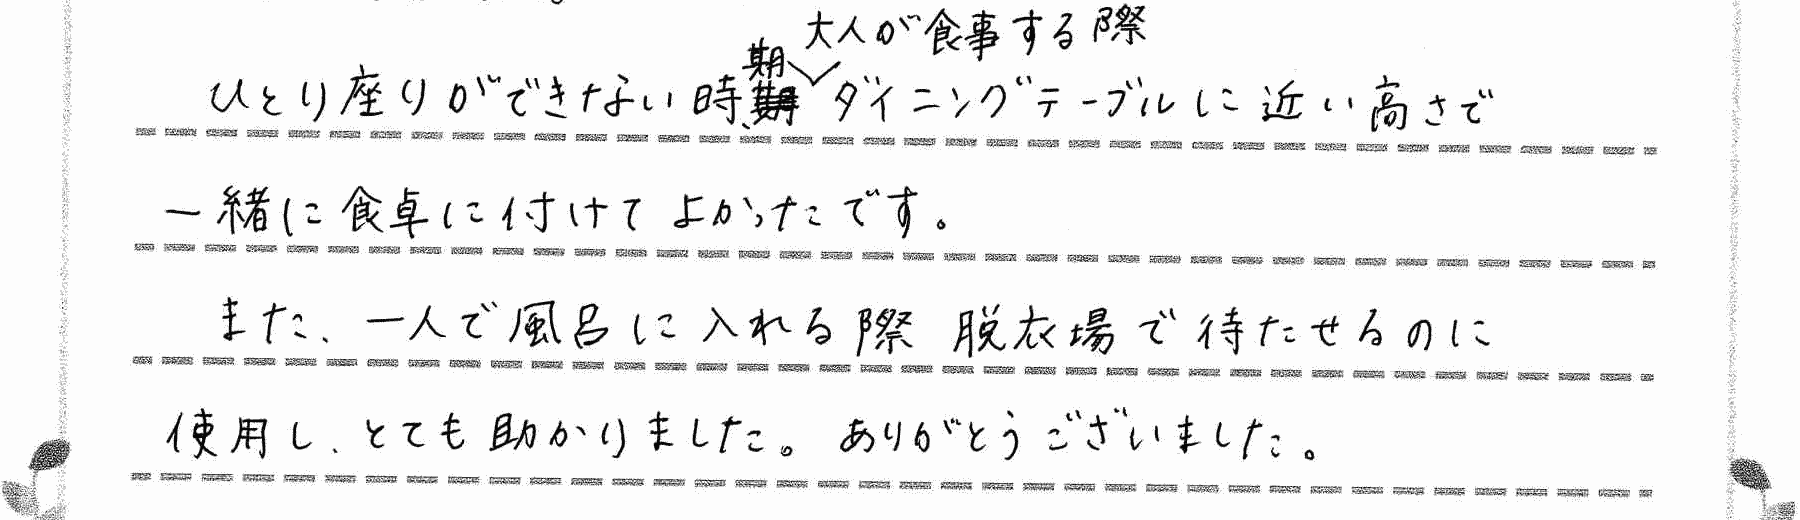 大人が食事する際
ひとり座りができない時期、ダイニングテーブルに近い高さで
一緒に食卓に付けてよかったです。
また、一人で風呂に入れる際 脱衣場で待たせるのに
使用し、とても助かりました。ありがとうございました。